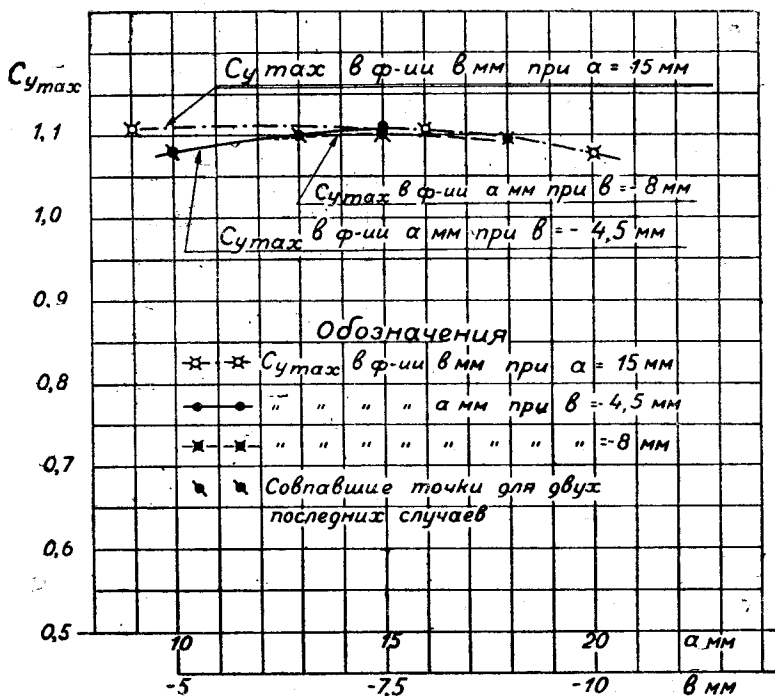 Cymax в ф-ии в мм при а = 15 мм
Cymax
1,1
Cymax в ф-ии а мм при в = -8 мм
1,0
Cymax в ф-ии а мм при в = - 4,5 мм
0,9
Обозначения
Cymax в ф-ии в мм при а = 15 мм
0,8
" " " " а мм при в = -4,5 мм
" " " " " " " " = -8 мм
0,7
Совпавшие точки для двух
последних случаев
0,6
0,5
10 15 20 а мм
-5 -7.5 -10 в мм